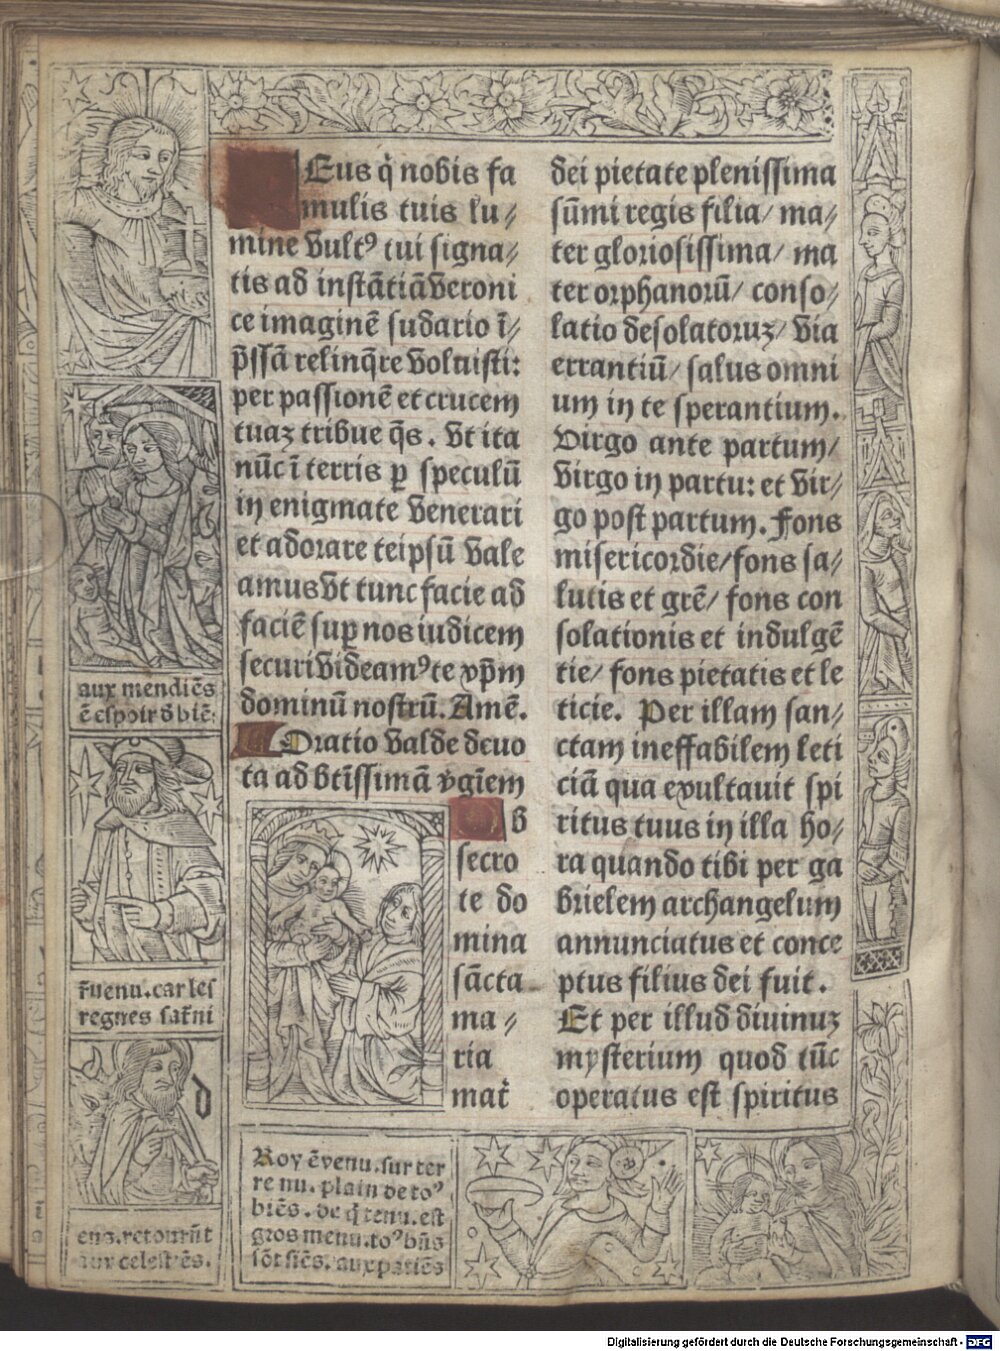 Eus q̄ nobis fa
mulis tuis lu⸗
mine vultꝰ tui signa⸗
tis ad instātiā veroni
ce imaginē sudario ī⸗
p̄ssā relinq̄re voluisti:
per passionē et crucem
tuaꝫ tribue q̄s. vt ita
nūc ī terris ꝑ speculū
in enigmate venerari
et adorare teipsū vale
amus vt tunc facie ad
faciē suꝑ nos iudicem
securi videamꝰ te xp̄m
dominū nostrū. Amē.
Oratio valde deuo
ta ad btīssimā v̄giēm
O b
secro
te do
mina
sācta
ma⸗
ria
mat̄
dei pietate plenissima
sūmi regis filia/ ma⸗
ter gloriosissima/ ma
ter orphanorū/ conso⸗
latio desolatoruꝫ/ via
errantiū/ salus omni
um in te sperantium.
Virgo ante partum/
virgo in partu: et vir⸗
go post partum. fons
misericordie/ fons sa⸗
lutis et grē/ fons con
solationis et indulgē
tie/ fons pietatis et le
ticie. Per illam san⸗
ctam ineffabilem leti
ciā qua exultauit spi
ritus tuus in illa ho⸗
ra quando tibi per ga
brielem archangelum
annunciatus et conce
ptus filius dei fuit.
Et per illud diuinuꝫ
mysterium quod tūc
operatus est spiritus
aux mendiēs
ē espoir d̄ biē:
r̄uenu. car les
regnes sat̄ni
d
ens. retournt
aux celestes.
Roy ēvenu. sur ter
re nu. plain de toꝰ
biēs. de q̄ tenu. est
gros menu. toꝰ bn̄s
sōt siēs. aux paiēs
Digitalisierung gefördert durch die Deutsche Forschungsgemeinschaft - DFG